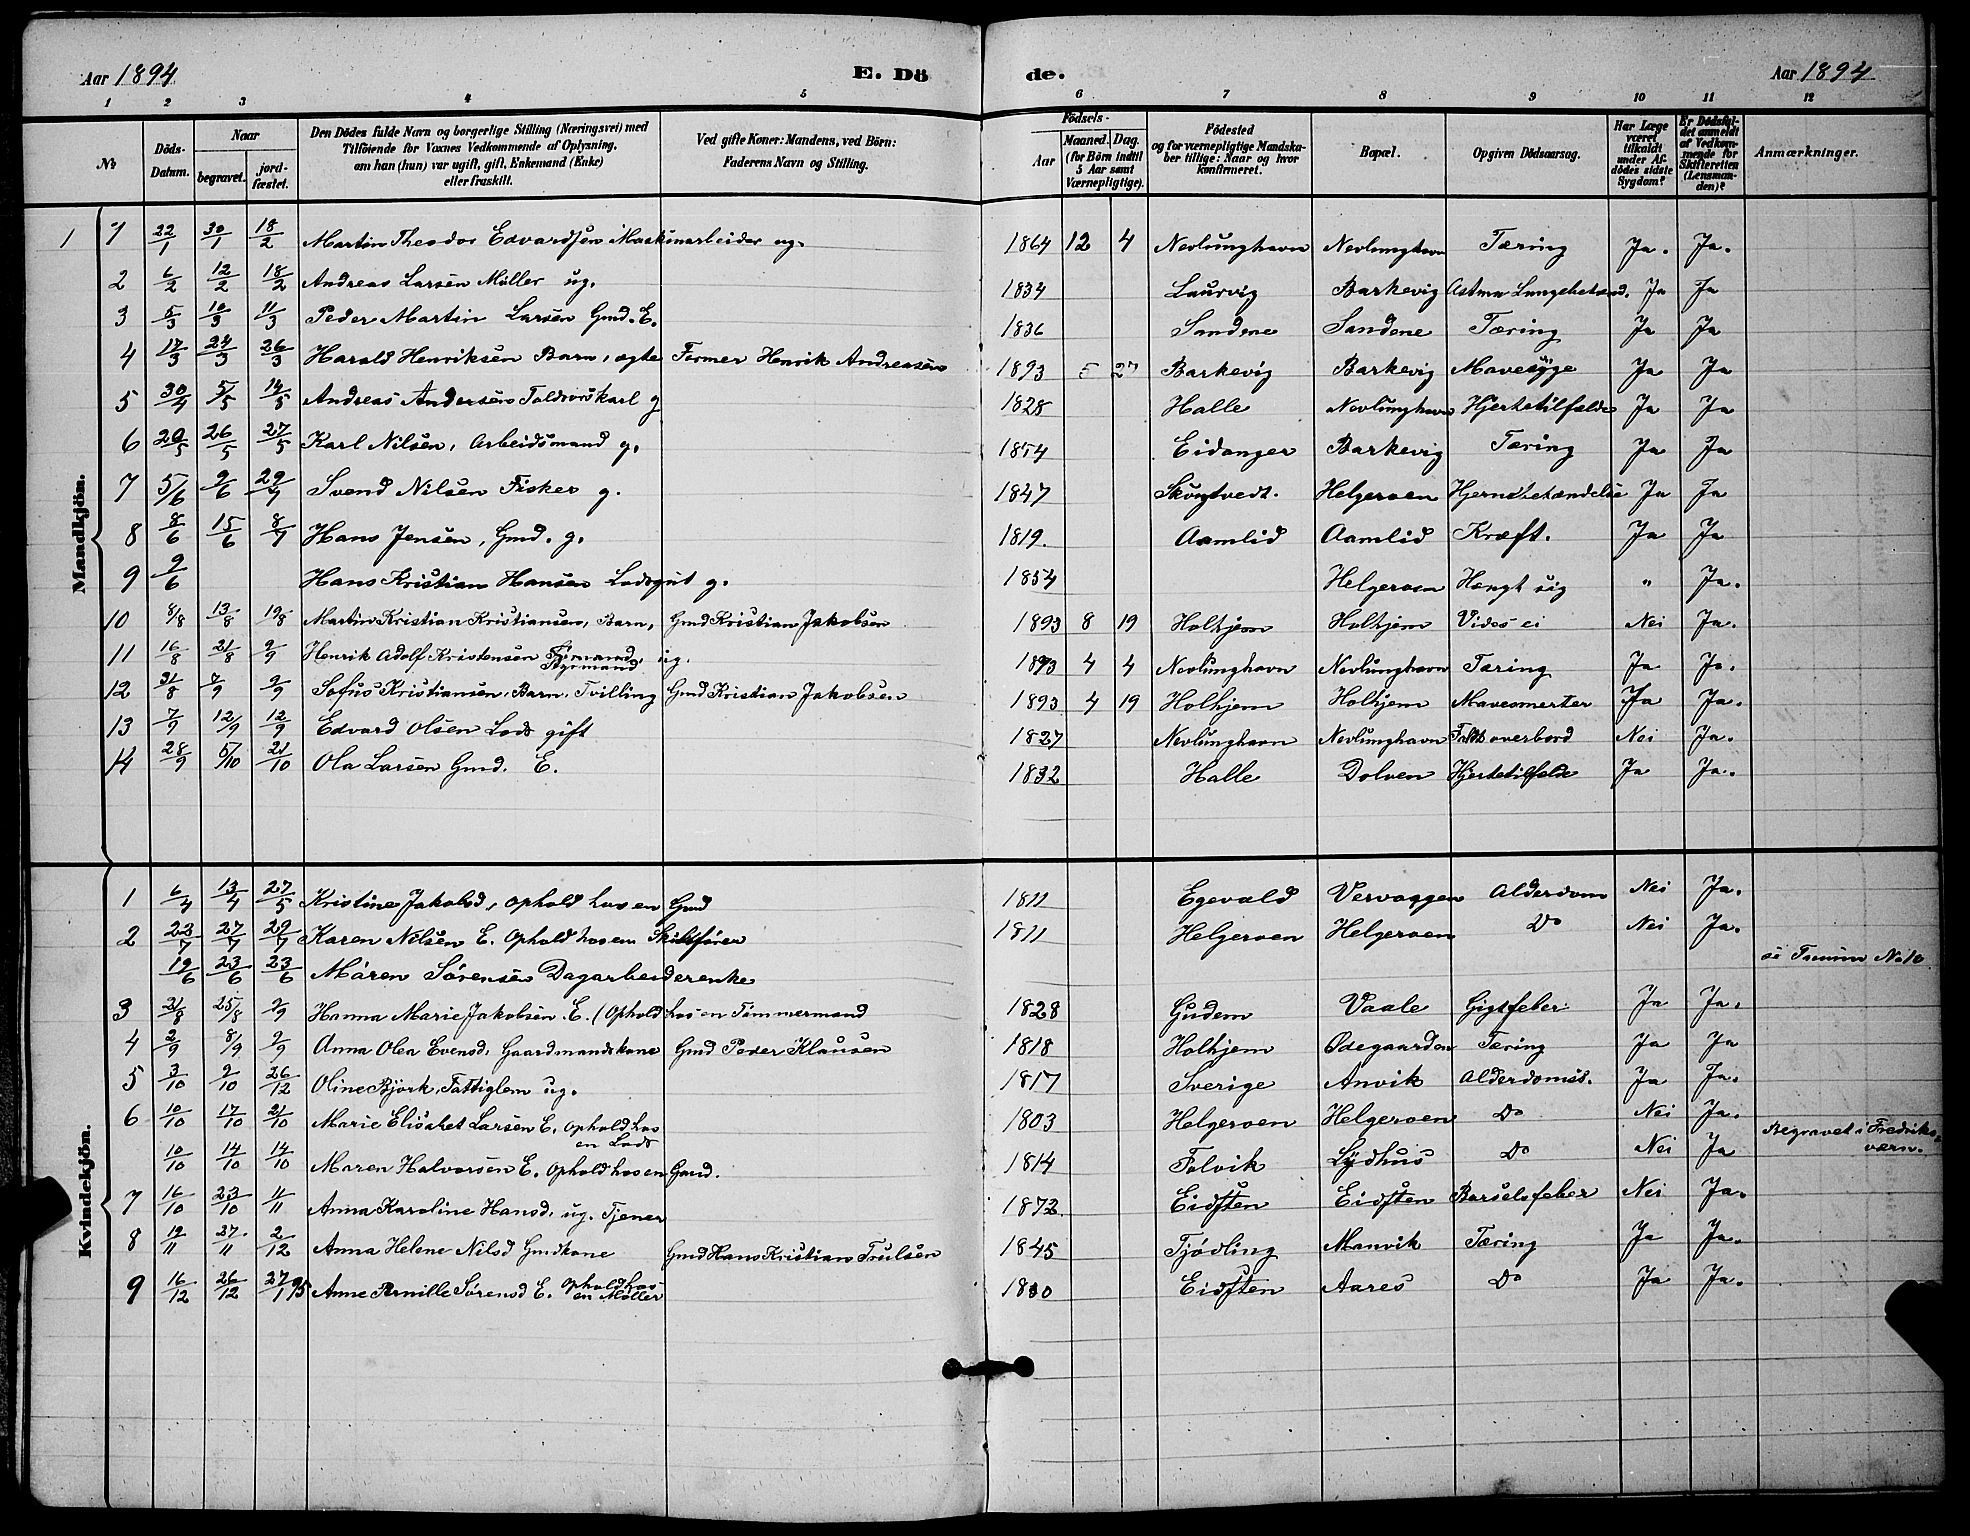 Aar 1894
E. Dö
de.
Aar 1894
1 2 3 4 5 6 7 8 9 10 11 12
№
Döds-
Datum.
Naar
begravet.
jord-
fæstet.
Den Dödes fulde Navn og borgerlige Stilling (Næringsvei) med
Tilföiende for Voxnes Vedkommende af Oplysning,
om han (hun) var ugift, gift, Enkemand (Enke)
eller fraskilt.
Ved gifte Koner: Mandens, ved Börn:
Faderens Navn og Stilling.
Födsels-
Aar
Maaned. Dag.
(for Börn indtil
5 Aar samt
Værnepligtige).
Födested
og for værnepligtige Mandska-
ber tillige: Naar og hvor
konfirmeret.
Bopæl.
Opgiven Dödsaarsag.
Har Læge
været
tilkaldt
under Af-
dödes sidste
Sygdom?
Er Dödsfal-
det anmeldt
af Vedkom-
mende for
Skifteretten
(Lensman-
den)?
Anmærkninger.
Mandkjön.
1 1 22/1 30/1 18/2 Martin Theodor Edvardsen Maskinarbeider ug. 1864 12 4 Nevlunghavn Nevlunghavn Tæring Ja. Ja.
2 6/2 12/2 18/2 Andreas Larsen Møller ug. 1834 Laurvig Barkevig Astma Lungebetænd. Ja Ja
3 5/3 10/3 11/3 Peder Martin Larsen Gmd. E. 1836 Sandene Sandene Tæring Ja Ja
4 17/3 24/3 26/3 Harald Henriksen Barn, ægte Former Henrik Andreasen 1893 5 27 Barkevig Barkevig Mavesyge Ja Ja
5 30/4 5/5 14/5 Andreas Andersen Toldvorskarl g 1828 Halle Nevlunghavn Hjertetilfælde Ja Ja
6 20/5 26/5 27/5 Karl Nilsen, Arbeidsmand g. 1854 Eidanger Barkevig Tæring Ja Ja
7 5/6 9/6 29/7 Svend Nilsen Fisker g. 1847 Helgeroen Hjernebetændelse Ja Ja
8 8/6 15/6 8/7 Hans Jensen, Gmd. g. 1819. Aamlid Aamlid Kræft. Ja Ja
9 9/6 Hans Kristian Hansen Lodsgut g. 1854 Helgeroen Hængt sig " Ja.
10 8/8 13/8 19/8 Martin Kristian Kristiansen, Barn, Gmd Kristian Jakobsen 1893 8 19 Holhjem Holhjem Vides ei Nei Ja.
11 16/8 21/8 9/9 Henrik Adolf Kristensen Styrmand, ug. 1893 4 4 Nevlunghavn Nevlunghavn Tæring Ja Ja.
12 31/8 7/9 9/9 Sofus Kristiansen, Barn, Tvilling Gmd Kristian Jakobsen 1893 4 19 Holhjem Holhjem Mavesmerter Ja Ja.
13 7/9 12/9 12/9 Edvard Olsen Lods gift 1827 Nevlunghavn Nevlunghavn Faldt overbord Nei Ja.
14 28/9 5/10 21/10 Ola Larsen Gmd. E. 1832 Halle Dolven Hjertetilfælde Ja Ja.
Kvindekjön.
1 6/4 13/4 27/5 Kristine Jakobsd, Ophold hos en Gmd 1811 Egevald Vervaggen Alderdom Nei Ja.
2 23/7 27/7 29/7 Karen Nilsen E. Ophold hos en Skibsfører 1811 Helgeroen Helgeroen Do Nei Ja.
19/6 23/6 23/6 Maren Sørensen Dagarbeiderenke
3 21/8 25/8 9/9 Hanna Marie Jakobsen E. (Ophold hos en Tømmermand 1828 Gudem Vaale Gigtfeber Ja Ja.
4 2/9 8/9 9/9 Anna Olea Evensd. Gaardmandskone Gmd Peder Klausen 1818 Holhjem Ødegaarden Tæring Ja Ja
5 3/10 9/10 26/12 Oline Bjørk, Fattiglem ug. 1817 Sverige Anvik Alderdomss. Ja Ja.
6 10/10 17/10 21/10 Marie Elisabet Larsen E. Ophold hos 1803 Helgeroen Helgeroen Do Nei Ja.
en Lods
10/10 14/10 14/10 Maren Halvorsen E. Ophold hos en Gmd. 1814 Folvik Lydhus Do Nei Ja Begravet i Fredriks-
værn.
7 16/10 23/10 11/11 Anna Karoline Hansd. ug. Tjener 1872 Eidsten Eidsten Barselsfeber Nei Ja.
8 19/11 27/11 2/12 Anna Helene Nilsd Gmdkone Gmd Hans Kristian Trulsen 1845 Tjødling Manvik Tæring Ja Ja.
9 16/12 26/12 27/1 95 Anne Pernille Sørensd E. Ophold hos
en Møller 1830 Eidsten Aares Do Ja Ja.